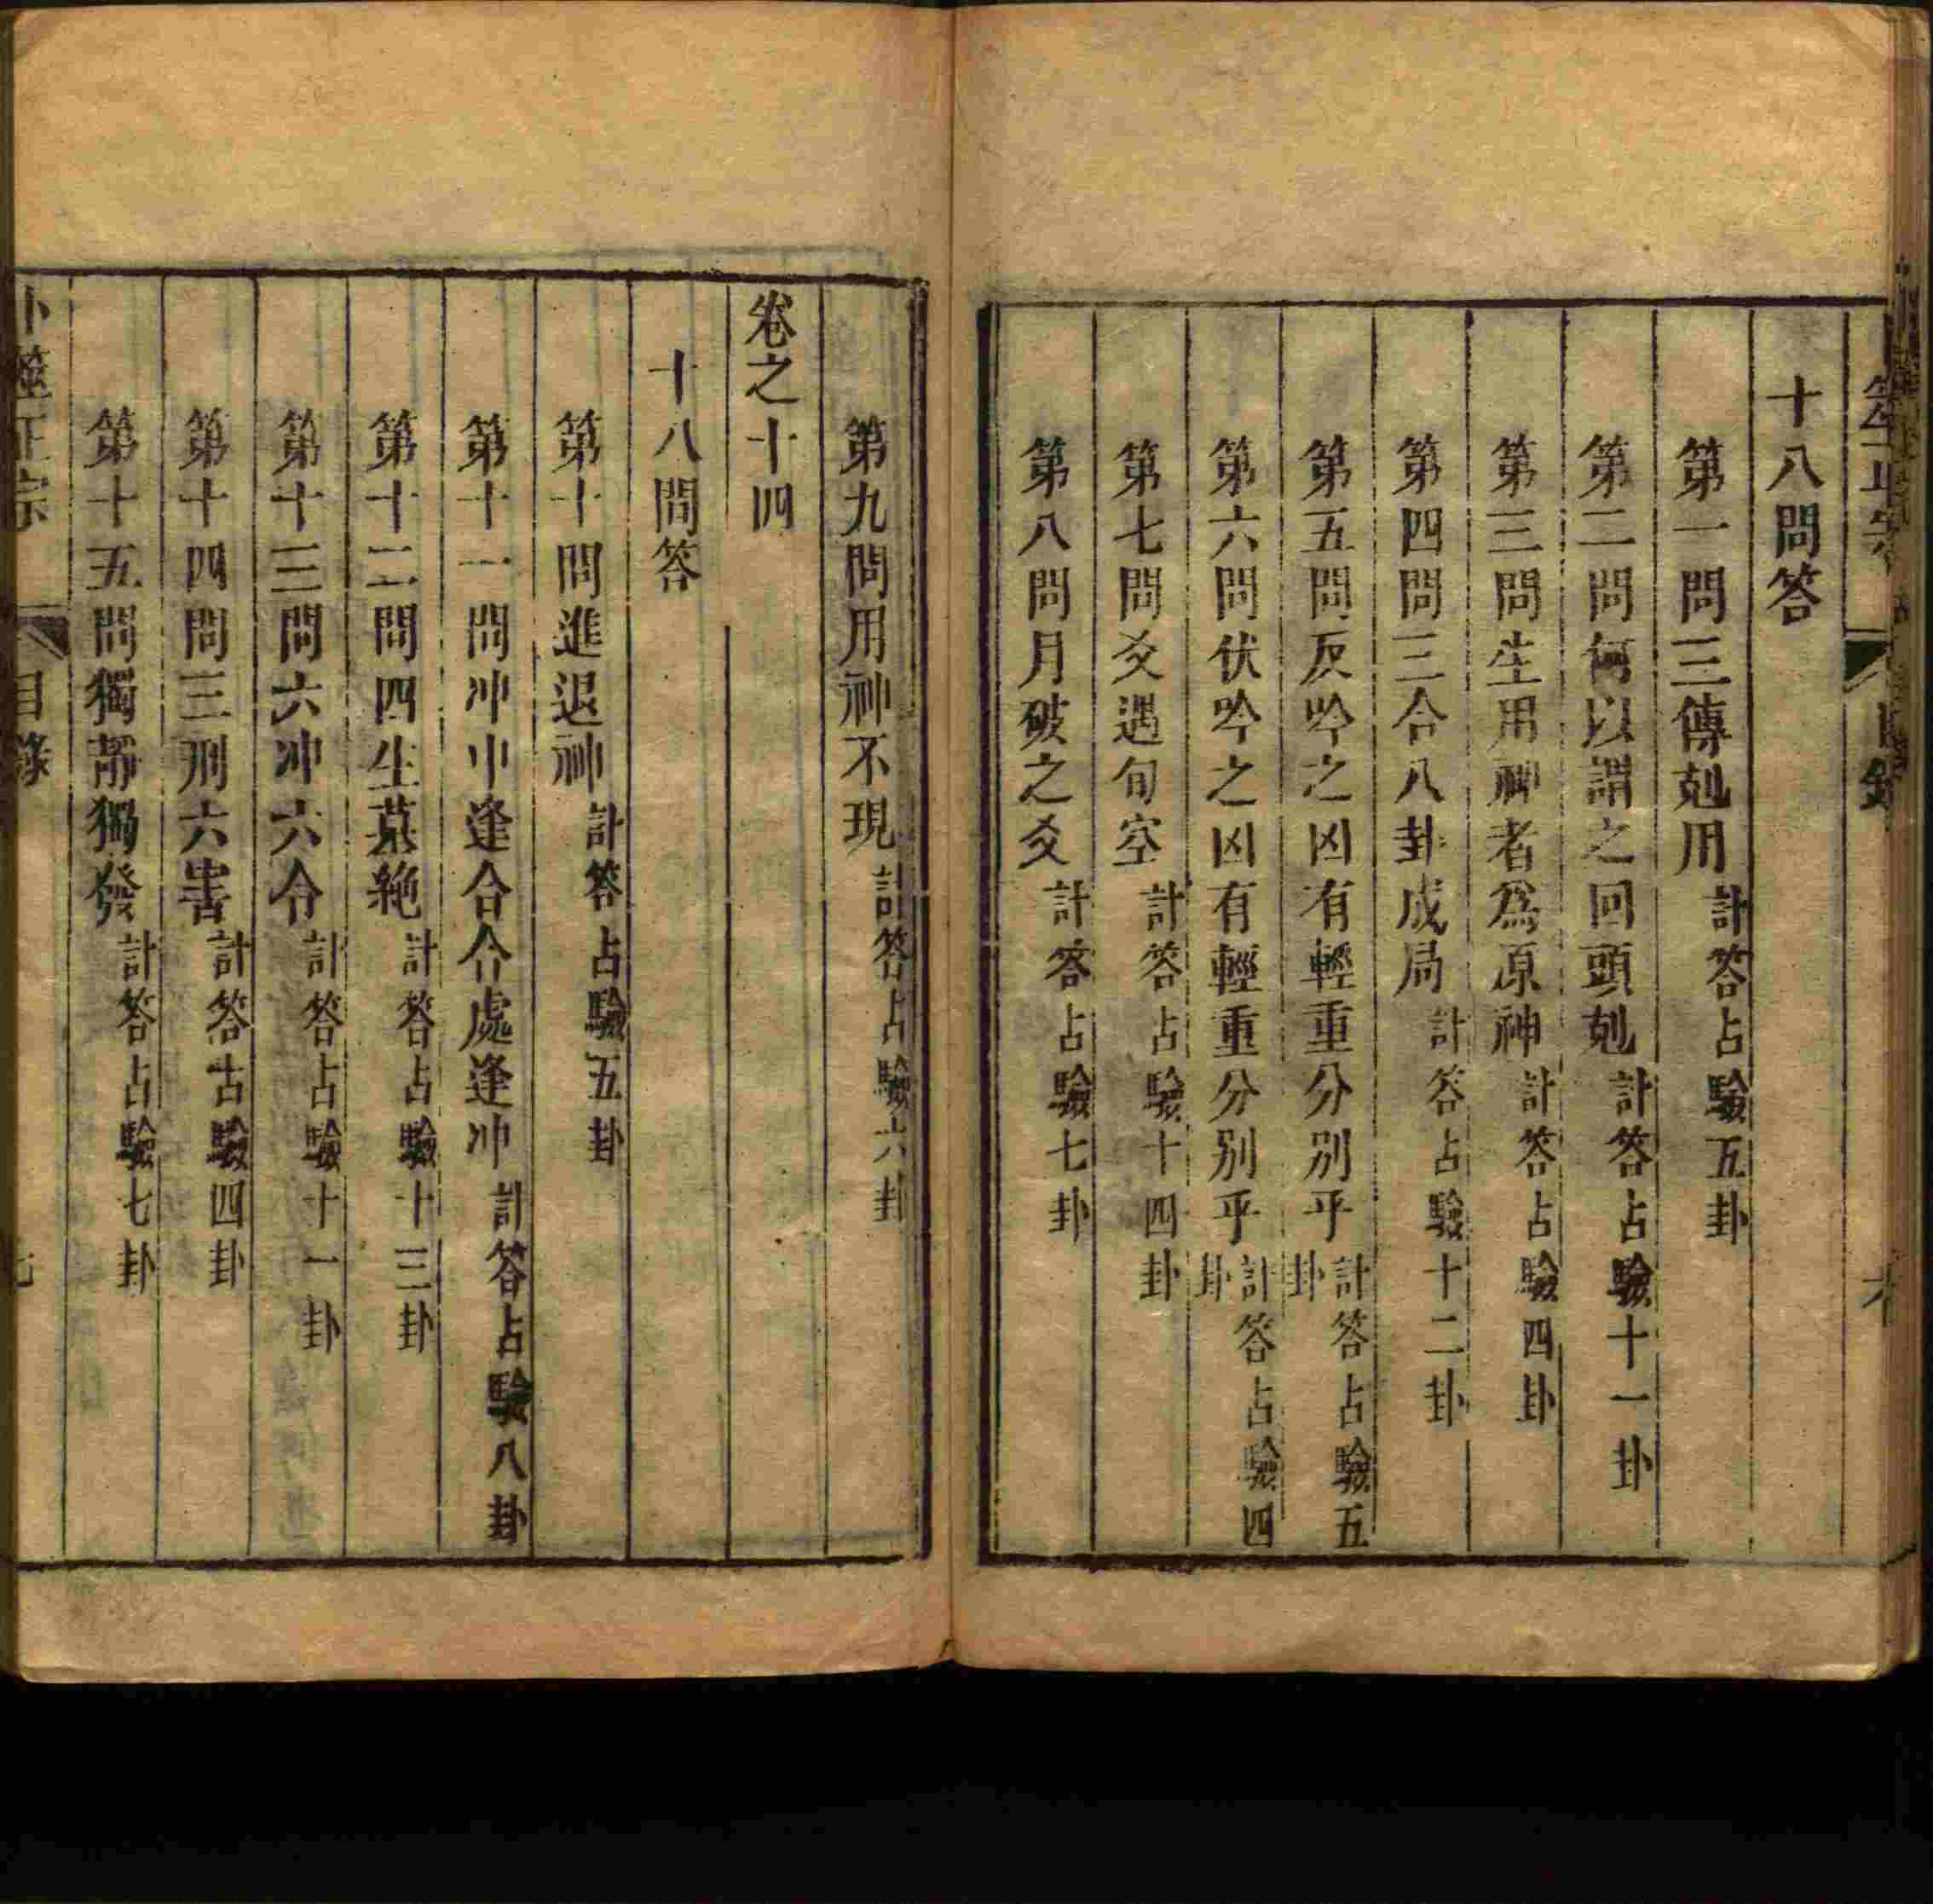 筮正宗 目錄 六
十八問答
第一問三傳剋用 計答占驗五卦
第二問何以謂之回頭剋 計答占驗十一卦
第三問生用神者為原神 計答占驗四卦
第四問三合八卦成局 計答占驗十二卦
第五問反吟之凶有輕重分別乎 計答占驗五卦
第六問伏吟之凶有輕重分別乎 計答占驗四卦
第七問爻遇旬空 計答占驗十四卦
第八問月破之爻 計答占驗七卦
第九問用神不現 計答占驗六卦
卷之十四
十八問答
第十問進退神 計答占驗五卦
第十一問冲中逢合合處逢冲 計答占驗八卦
第十二問四生墓絶 計答占驗十三卦
第十三問六冲六合 計答占驗十一卦
第十四問三刑六害 計答占驗四卦
第十五問獨靜獨發 計答占驗七卦
卜筮正宗 目錄